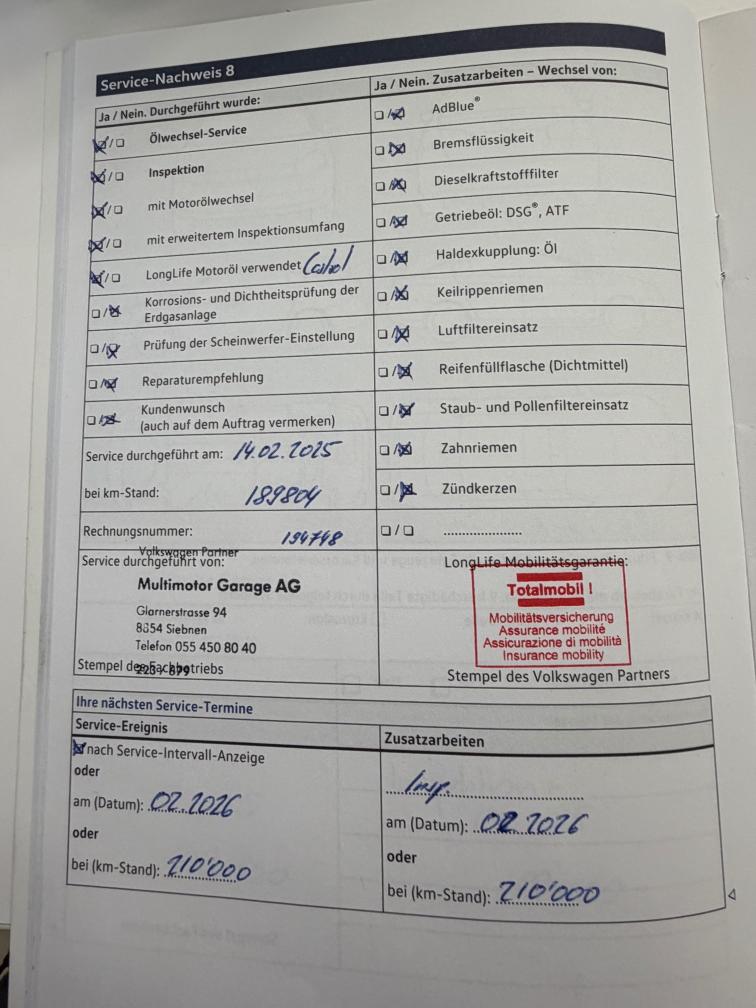 Service-Nachweis 8
Ja / Nein. Durchgeführt wurde:
☒/☐ Ölwechsel-Service
☒/☐ Inspektion
☒/☐ mit Motorölwechsel
☒/☐ mit erweitertem Inspektionsumfang
☒/☐ LongLife Motoröl verwendet
☐/☒ Korrosions- und Dichtheitsprüfung der
Erdgasanlage
☐/☒ Prüfung der Scheinwerfer-Einstellung
☐/☒ Reparaturempfehlung
☐/☒ Kundenwunsch
(auch auf dem Auftrag vermerken)
Service durchgeführt am: 14.02.2025
bei km-Stand: 189804
Rechnungsnummer: 194748
Volkswagen Partner
Service durchgeführt von:
Multimotor Garage AG
Glarnerstrasse 94
8854 Siebnen
Telefon 055 450 80 40
Stempel des Fachbetriebs
Ja / Nein. Zusatzarbeiten – Wechsel von:
☐/☒ AdBlue®
☐/☒ Bremsflüssigkeit
☐/☒ Dieselkraftstofffilter
☐/☒ Getriebeöl: DSG®, ATF
☐/☒ Haldexkupplung: Öl
☐/☒ Keilrippenriemen
☐/☒ Luftfiltereinsatz
☐/☒ Reifenfüllflasche (Dichtmittel)
☐/☒ Staub- und Pollenfiltereinsatz
☐/☒ Zahnriemen
☐/☒ Zündkerzen
☐/☐ ......................
LongLife Mobilitätsgarantie:
Totalmobil !
Mobilitätsversicherung
Assurance mobilité
Assicurazione di mobilità
Insurance mobility
Stempel des Volkswagen Partners
Ihre nächsten Service-Termine
Service-Ereignis
☒ nach Service-Intervall-Anzeige
oder
am (Datum): 02.2026
oder
bei (km-Stand): 210'000
Zusatzarbeiten
Insp.
am (Datum): 02.2026
oder
bei (km-Stand): 210'000